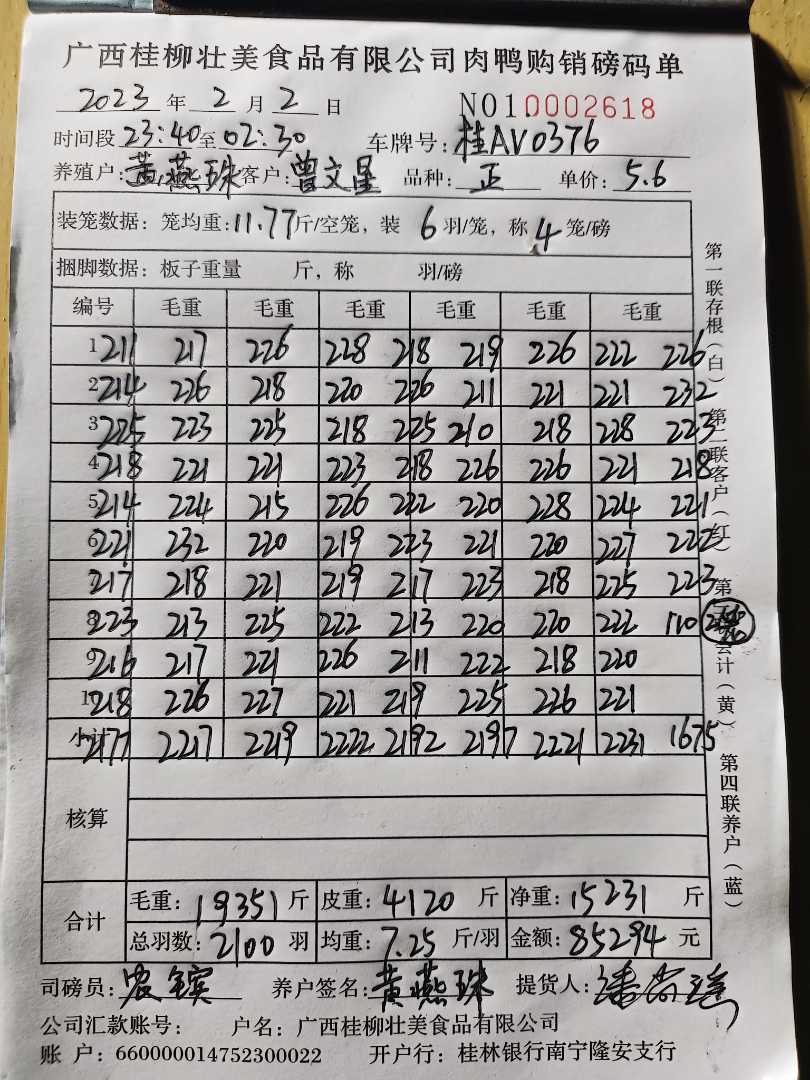 广西桂柳壮美食品有限公司肉鸭购销磅码单
2023 年 2 月 2 日 NO1.0002618
时间段 23:40 至 02:30 车牌号: 桂AV0376
养殖户: 黄燕珠 客户: 曾文星 品种: 正 单价: 5.6
装笼数据: 笼均重: 11.77 斤/空笼, 装 6 羽/笼, 称 4 笼/磅
捆脚数据: 板子重量 斤, 称 羽/磅
编号 毛重 毛重 毛重 毛重 毛重 毛重
1 211 217 226 228 218 219 226 222 226
2 214 226 218 220 226 211 221 221 232
3 225 223 225 218 225 210 218 228 223
4 218 221 221 223 218 226 226 221 218
5 214 224 215 226 222 220 228 224 221
6 221 232 220 219 223 221 220 227 222
217 218 221 219 217 223 218 225 223
8 223 213 225 222 213 220 220 222 110
9 216 217 221 226 211 222 218 220
1 218 226 227 221 219 225 226 221
小计 2177 2217 2219 2222 2192 2197 2221 2231 1675
核算
合计 毛重: 19351 斤 皮重: 4120 斤 净重: 15231 斤
总羽数: 2100 羽 均重: 7.25 斤/羽 金额: 85294 元
司磅员: 养户签名: 黄燕珠 提货人:
公司汇款账号: 户名: 广西桂柳壮美食品有限公司
账 户: 660000014752300022 开户行: 桂林银行南宁隆安支行
第一联存根(白) 第二联客户(红) 第 会计(黄) 第四联养户(蓝)